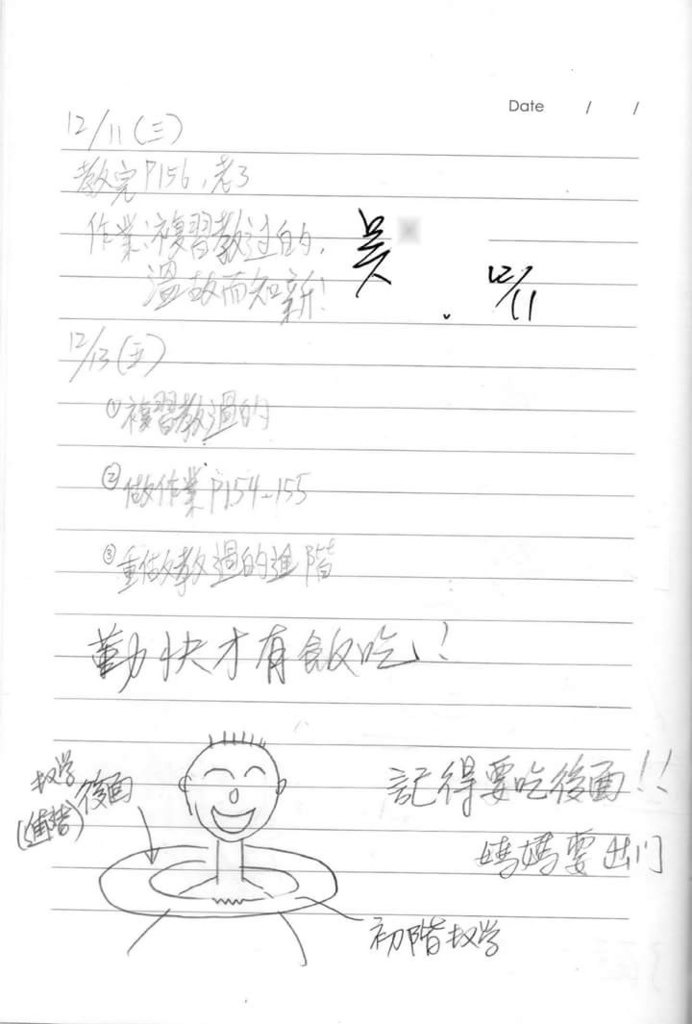 Date / /
12/11(三)
教完P156,考3
作業:複習教过的,
溫故而知新!
吳
12/11
12/13(五)
①複習教過的
②做作業P154-155
③重做教過的進階
勤快才有飯吃!
教学
(進階)
後面
記得要吃後面!!
媽媽要出门
初階教学